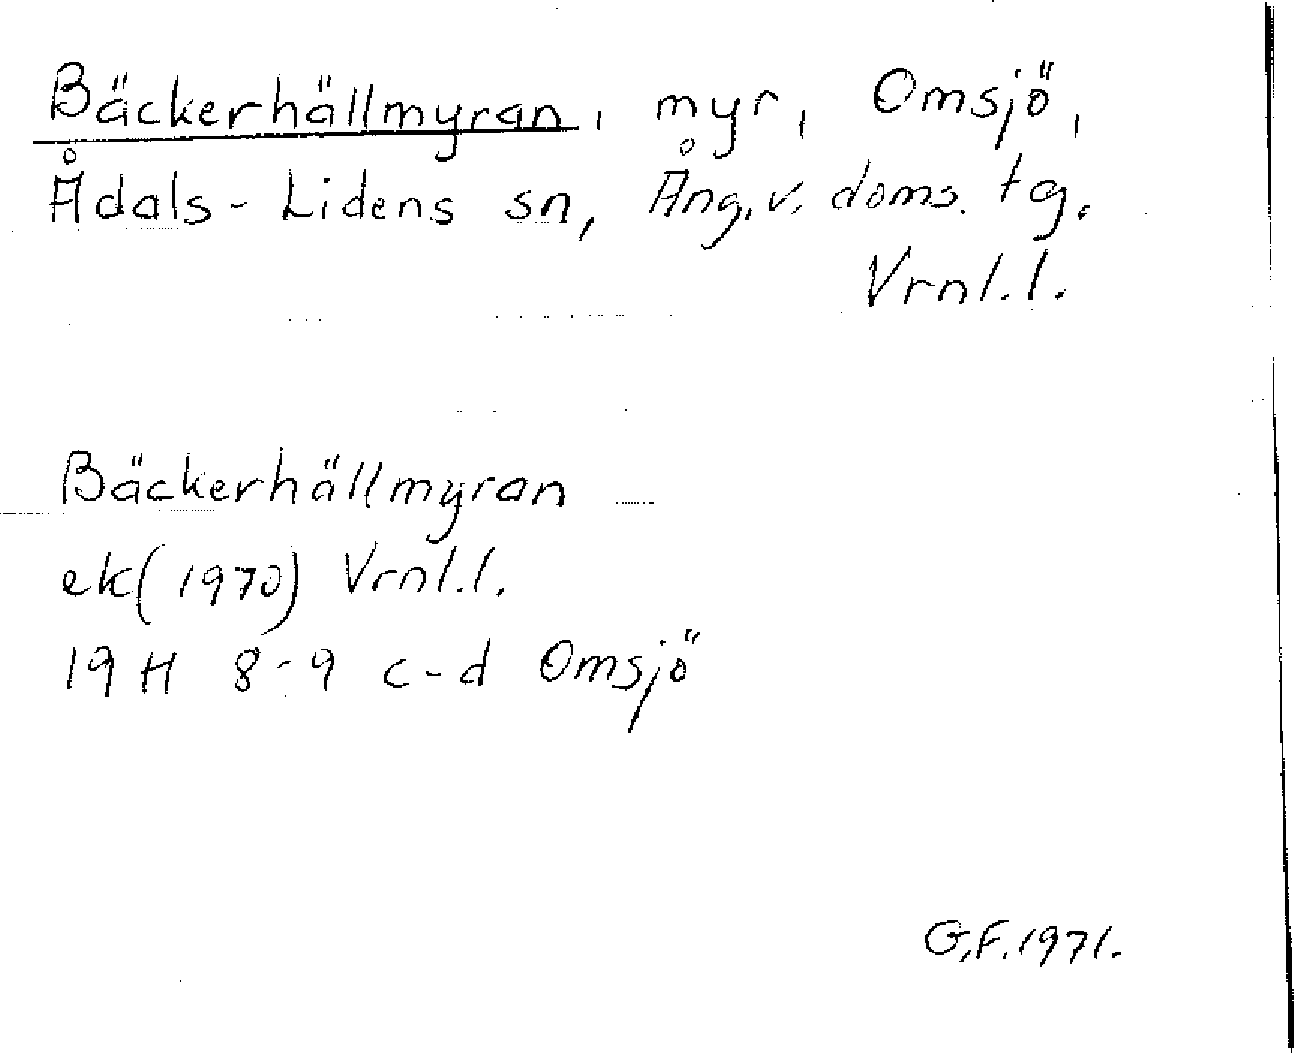 Bäckerhällmyran, myr, Omsjö,
Ådals-Lidens sn, Ång.v. doms. tg.
Vrnl.l.
Bäckerhällmyran
ek(1970) Vrnl.l.
19 H 8-9 c-d Omsjö
G.F.1971.